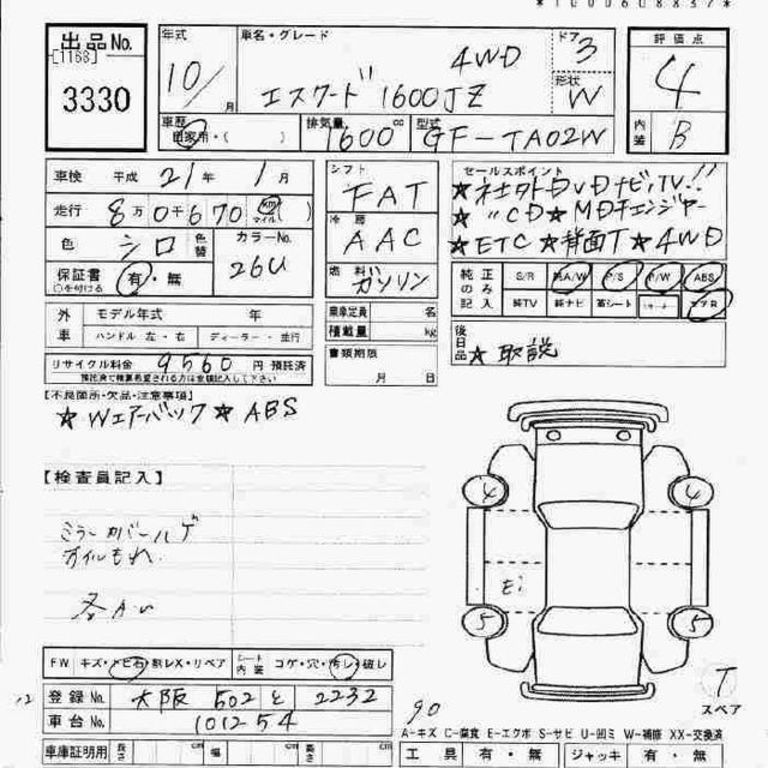 *1000608837*
出品No.
[1168]
3330
年式
10/
月
車名・グレード
4WD
エスクード 1600JZ
ドア
3
形状
W
評価点
4
内装
B
車歴
自家用・( )
排気量
1600 cc
型式
GF-TA02W
車検 平成 21 年 1 月
走行 8万0千670 km マイル ( )
色 シロ 色替
カラーNo.
26U
保証書 有・無
○を付ける
シフト
FAT
冷房
AAC
燃料
ガソリン
セールスポイント
★社外DVDナビ,TV!!
★ 〃CD★MDチェンジャー
★ETC★背面T★4WD
純正のみ記入
S/R 純A/W P/S P/W ABS
純TV 純ナビ 革シート エアB
外車
モデル年式 年
ハンドル 左・右 ディーラー・並行
乗車定員 名
積載量 kg
書類期限
月 日
後日品
★取説
リサイクル料金 9560 円 預託済
預託済で精算希望される方は金額記入して下さい
【不良箇所・欠品・注意事項】
★Wエアーバック★ABS
【検査員記入】
ミラーカバーハゲ
オイルもれ
各A・U
4 4
E1
5 5
T
スペア
FW キズ・トビ石・飲レX・リペア
シート内装 コゲ・穴・汚レ・破レ
登録No. 大阪 502 と 2232
車台No. 101254
90
A-キズ C-腐食 E-エクボ S-サビ U-凹ミ W-補修 XX-交換済
車庫証明用 長さ cm 幅 cm 高さ cm
工具 有・無 ジャッキ 有・無